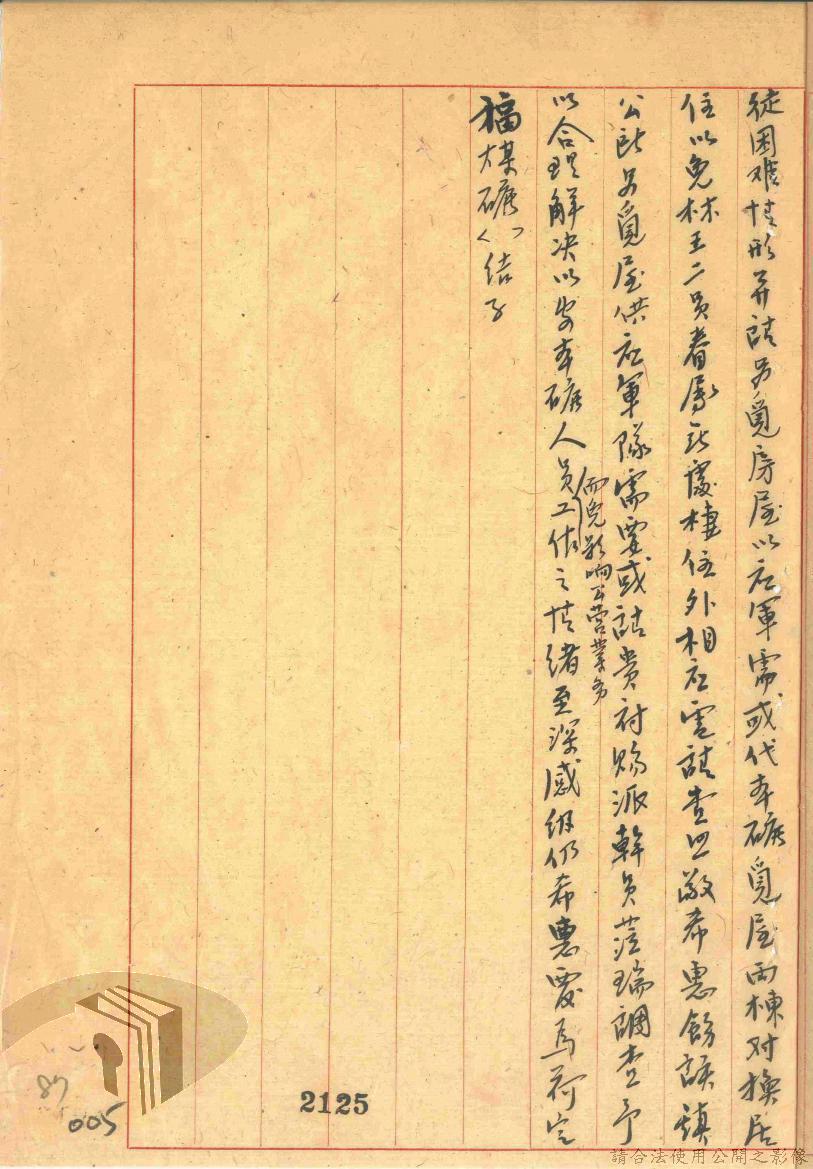 徙困难情形并請另覓房屋以应軍需或代本礦覓屋兩棟对換居
住以免林王二員眷属無處棲住外相应電請查照敬希惠飭該鎮
公所另覓屋供应軍隊需要或請貴府賜派幹員蒞瑞調查予
以合理解決以安本礦人員工作之情緒至深感紉仍希惠覆為荷
而免影响工营業务
福大煤礦
2125
87
005
請合法使用公開之影像